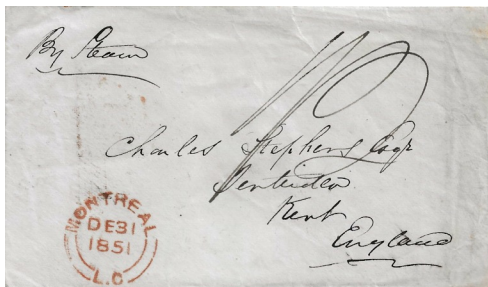 By Steam
Charles Stephens Esqr
Tenterden
Kent
England
MONTREAL
DE31
1851
L.C